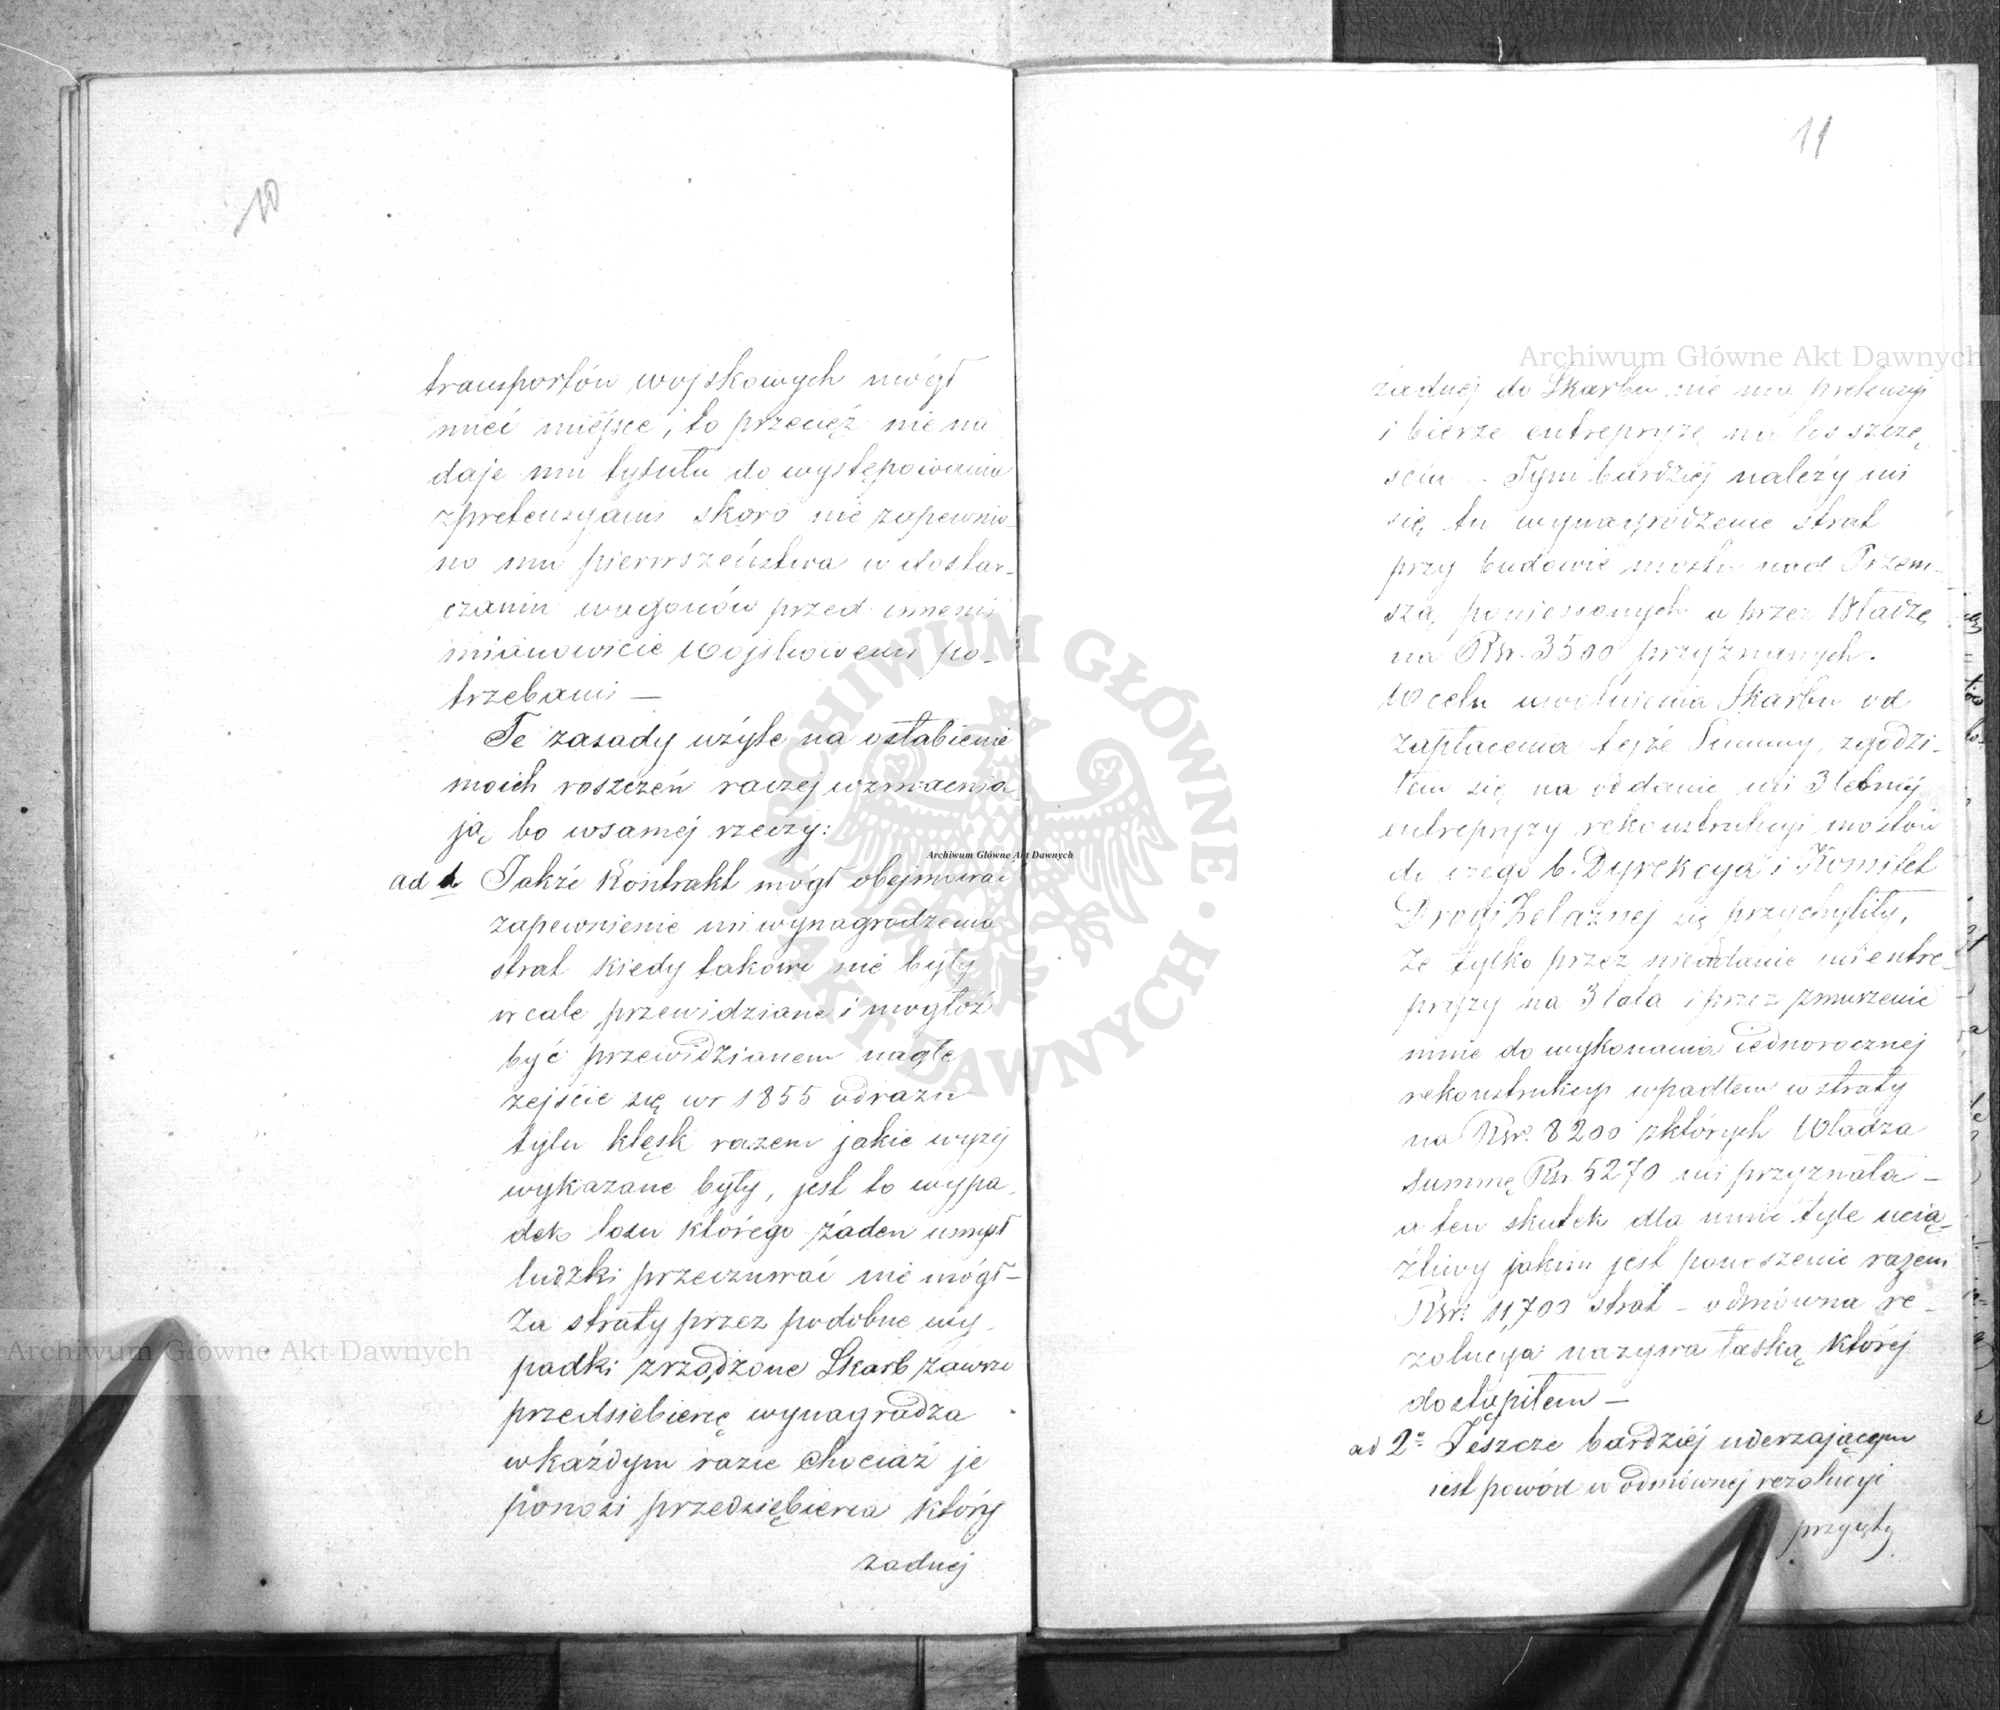 10
transportów wojskowych mógł
mieć miejsce, to przecięż nie na
daje mu tytułu do występowania
zpretensyami skoro nie zapewnio-
no mu pierwszeństwa w dostar-
czaniu wagonów przed innemi
mianowicie wojskowemi po-
trzebami —
Te zasady użyte na osłabienie
moich roszczeń raczej wzmacnia
ją, bo wsamej rzeczy:
ad 1 Jakże Kontrakt mógł obejmować
zapewnienie mi wynagrodzenia
strat kiedy takowe nie były
wcale przewidziane i mogłoż
być przewidzianem nagłe
zejście się w r 1855 odrazu
tylu klęsk razem jakie wyżej
wykazane były, jest to wypa-
dek losu którego żaden umysł
ludzki przeczuwać nie mógł —
Za straty przez podobne wy-
padki zrządzone Skarb zawsze
przedsiebiercę wynagradza
wkażdym razie chociaż je
ponosi przedsiębierca który
żadnej
11
żadnej do Skarbu nie ma pretensyi
i bierze entrepryzę na los szczę-
ścia — Tym bardziej należy mi
się tu wynagrodzenie strat
przy budowie mostu nad Przem-
szą poniesionych a przez Władzę
na Rsr. 3500 przyznanych.
W celu uwolnienia Skarbu od
zapłacenia tejże Summy, zgodzi-
łem się na oddanie mi 3 letniej
entrepryzy rekonstrukcyi mostów
do czego b. Dyrekcya i Komitet
Drogi Żelaznej się przychyliły,
że tylko przez nieoddanie mi entre-
pryzy na 3 lata i przez zmuszenie
mnie do wykonania iednorocznej
rekonstrukcyi wpadłem w straty
na Rsr. 8200 zktórych Władza
summę Rsr. 5270 mi przyznała —
a ten skutek dla mnie tyle ucią-
żliwy jakim jest poniesienie razem
Rsr. 11,700 strat — odmówna re-
zolucya nazywa łaską której
dostąpiłem —
ad 2º Jeszcze bardziej uderzającym
iest powód w odmównej rezolucyi
przyięty
Archiwum Główne Akt Dawnych
Archiwum Główne Akt Dawnych
Archiwum Główne Akt Dawnych
ARCHIWUM GŁÓWNE · AKT DAWNYCH ·